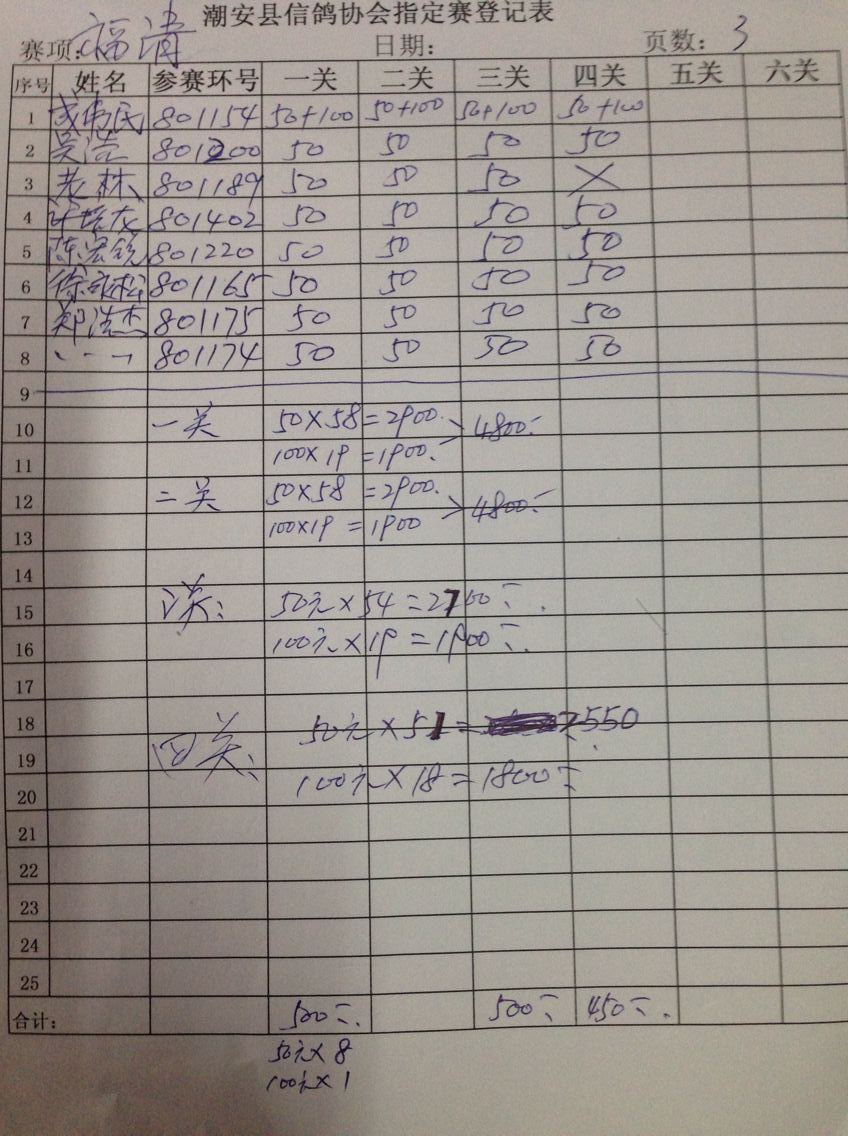 潮安县信鸽协会指定赛登记表
赛项:福清 日期: 页数: 3
序号 姓名 参赛环号 一关 二关 三关 四关 五关 六关
1 801154 50+100 50+100 50+100 50+100
2 吴浩 801200 50 50 50 50
3 老林 801189 50 50 50 ×
4 叶培龙 801402 50 50 50 50
5 陈宏锐 801220 50 50 50 50
6 徐永松 801165 50 50 50 50
7 郑浩杰 801175 50 50 50 50
8 801174 50 50 50 50
9
10 一关 50×58=2900. 4800
11 100×19=1900.
12 二关 50×58=2900. 4800
13 100×19=1900
14
15 三关: 50元×54=2700
16 100元×19=1900
17
18 四关: 50元×51= 2550
19
20 100元×18=1800
21
22
23
24
25
合计: 500 500 450
50元×8
100元×1